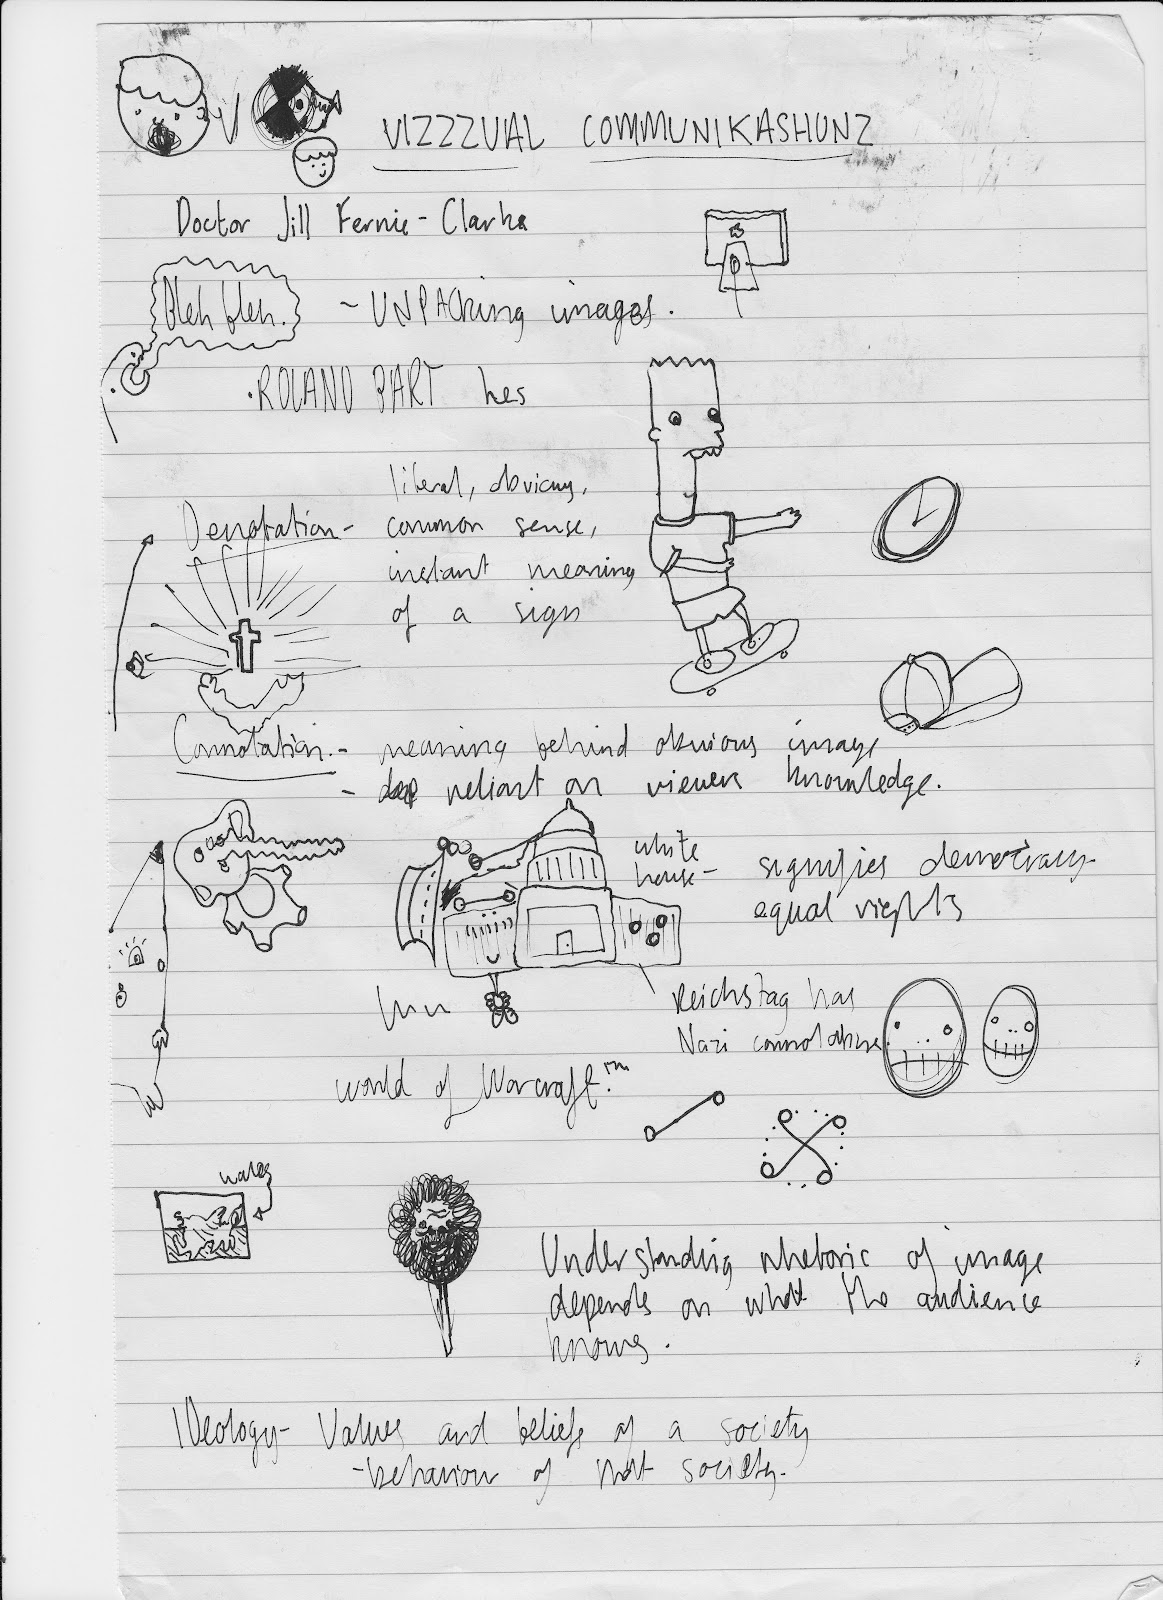 V
VIZZZUAL COMMUNIKASHUNZ
Doctor Jill Fernie-Clarke
Bleh bleh. ~ UNPACKing images.
·ROLAND BART hes
Denotation - literal, obvious,
common sense,
instant meaning
of a sign
Connotation. - meaning behind obvious image
- reliant on viewers knowledge.
white
house - signifies democracy
equal rights
Reichstag has
Nazi connotations
World of Warcraft.™
wales
Understanding rhetoric of image
depends on what the audience
knows.
IDeology - Values and beliefs of a society
- behaviour of that society.